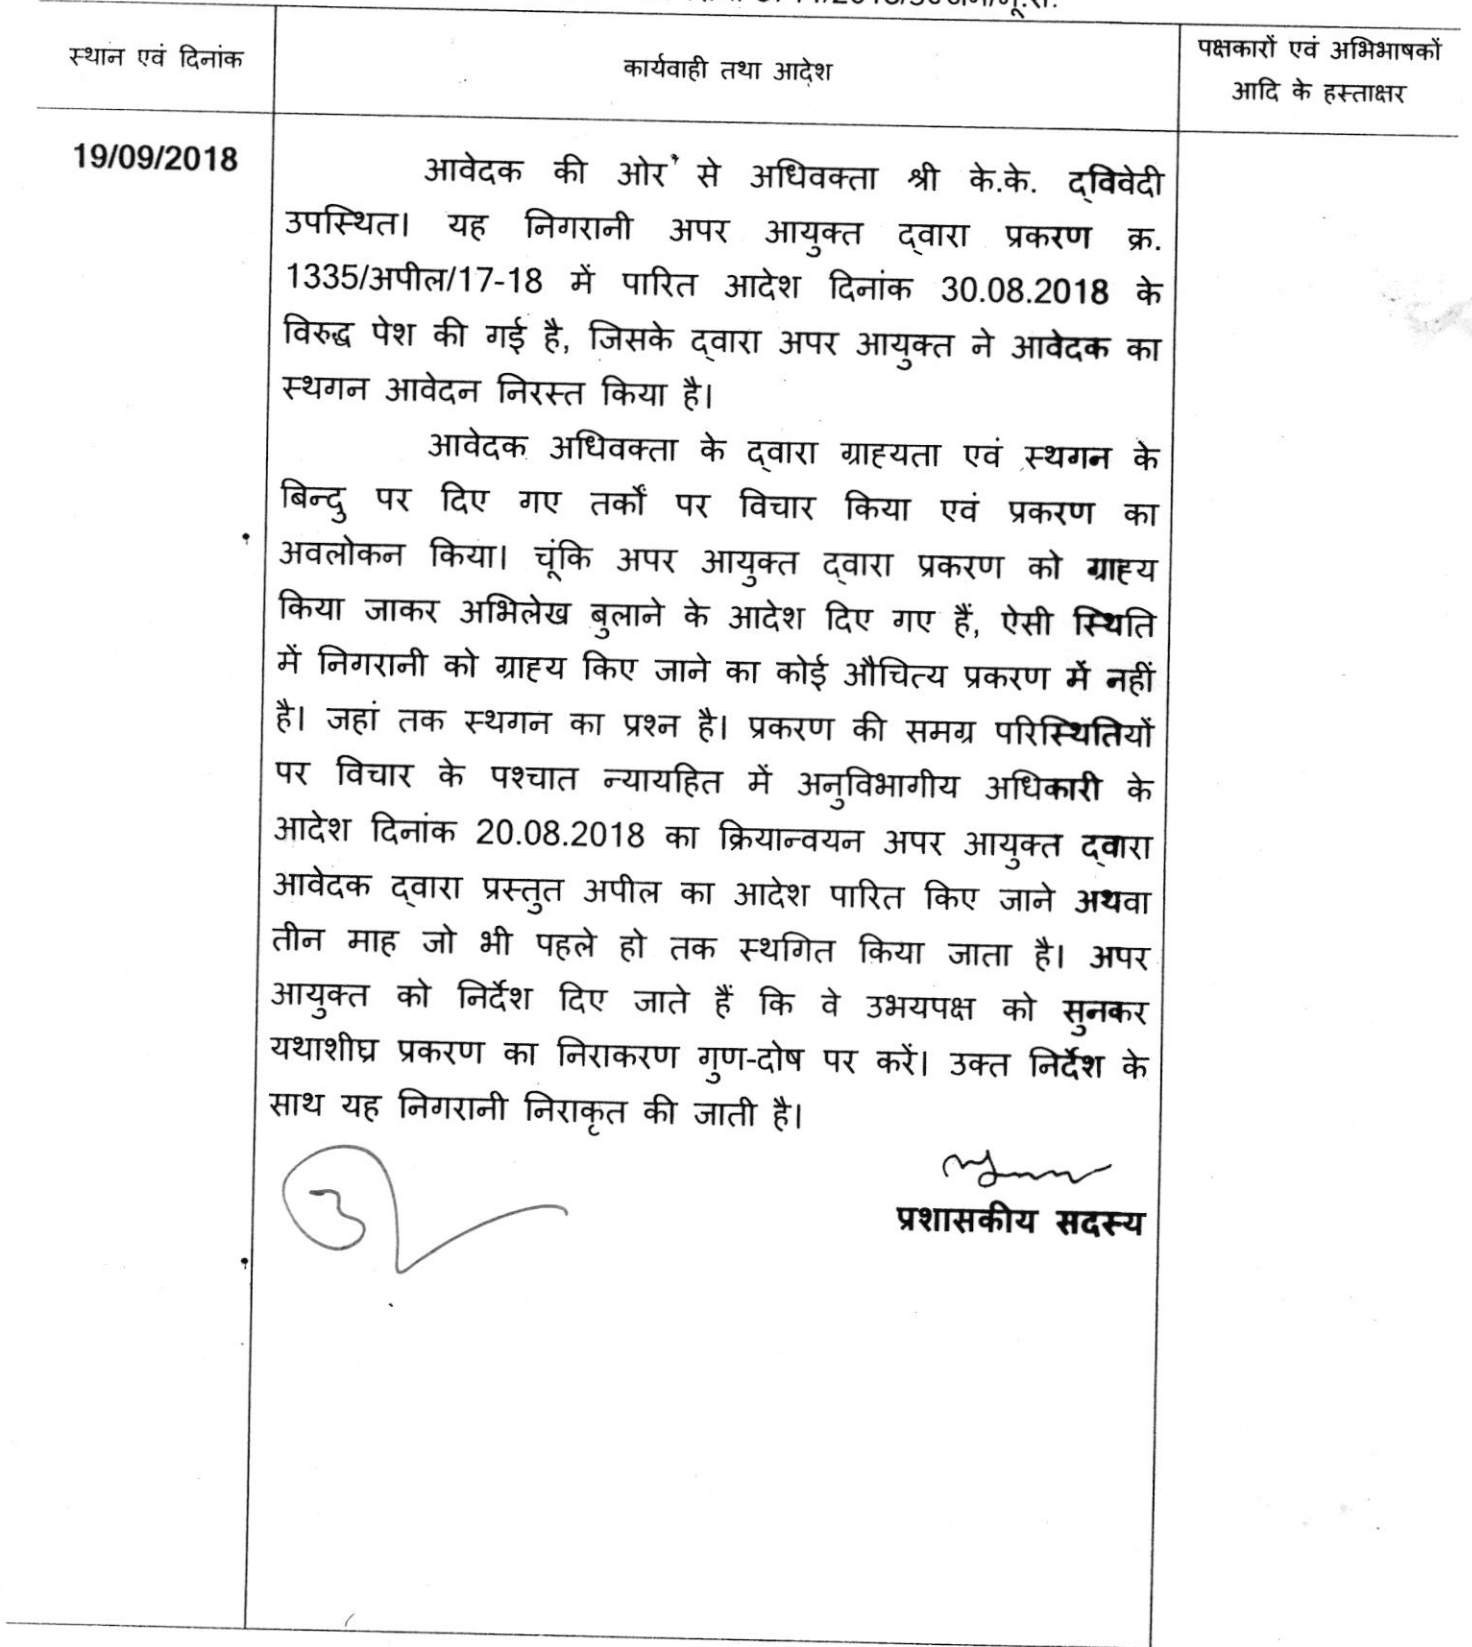 स्थान एवं दिनांक
कार्यवाही तथा आदेश
पक्षकारों एवं अभिभाषकों
आदि के हस्ताक्षर
19/09/2018
आवेदक की ओर से अधिवक्ता श्री के.के. द्विवेदी
उपस्थित। यह निगरानी अपर आयुक्त द्वारा प्रकरण क्र.
1335/अपील/17-18 में पारित आदेश दिनांक 30.08.2018 के
विरुद्ध पेश की गई है, जिसके द्वारा अपर आयुक्त ने आवेदक का
स्थगन आवेदन निरस्त किया है।
आवेदक अधिवक्ता के द्वारा ग्राह्यता एवं स्थगन के
बिन्दु पर दिए गए तर्कों पर विचार किया एवं प्रकरण का
अवलोकन किया। चूंकि अपर आयुक्त द्वारा प्रकरण को ग्राह्य
किया जाकर अभिलेख बुलाने के आदेश दिए गए हैं, ऐसी स्थिति
में निगरानी को ग्राह्य किए जाने का कोई औचित्य प्रकरण में नहीं
है। जहां तक स्थगन का प्रश्न है। प्रकरण की समग्र परिस्थितियों
पर विचार के पश्चात न्यायहित में अनुविभागीय अधिकारी के
आदेश दिनांक 20.08.2018 का क्रियान्वयन अपर आयुक्त द्वारा
आवेदक द्वारा प्रस्तुत अपील का आदेश पारित किए जाने अथवा
तीन माह जो भी पहले हो तक स्थगित किया जाता है। अपर
आयुक्त को निर्देश दिए जाते हैं कि वे उभयपक्ष को सुनकर
यथाशीघ्र प्रकरण का निराकरण गुण-दोष पर करें। उक्त निर्देश के
साथ यह निगरानी निराकृत की जाती है।
प्रशासकीय सदस्य